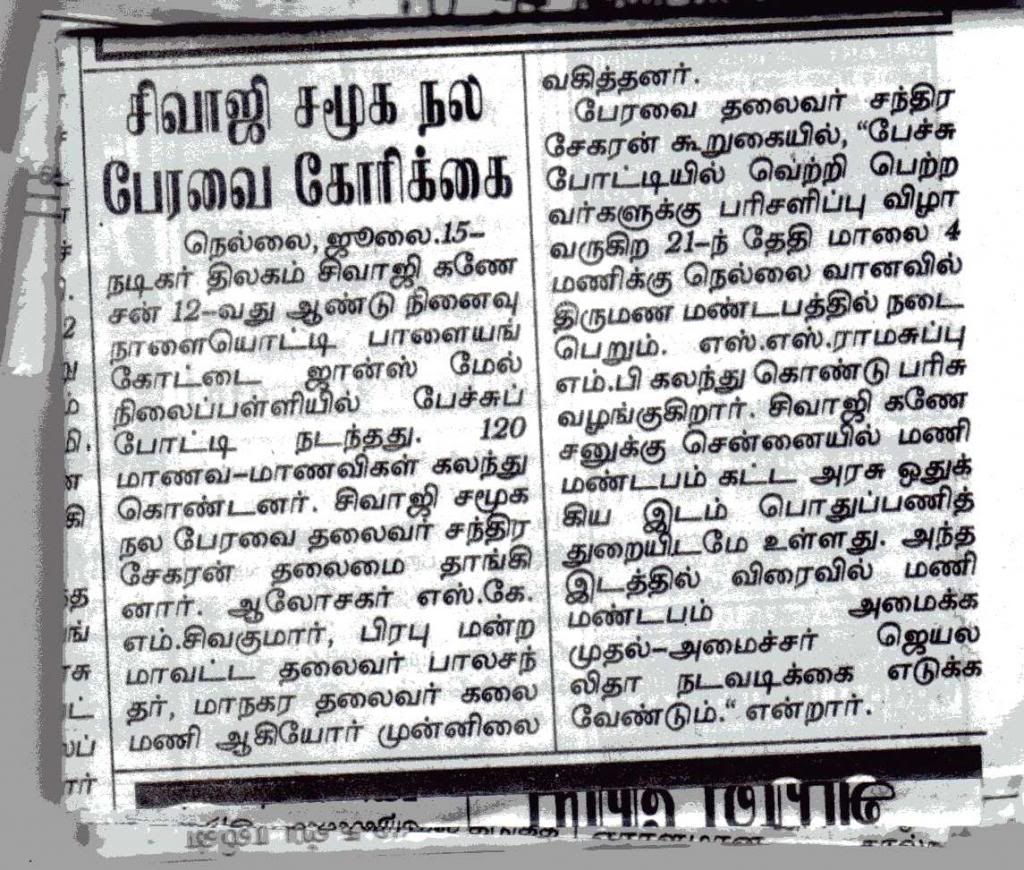 சிவாஜி சமூக நல
பேரவை கோரிக்கை
நெல்லை,ஜூலை.15–
நடிகர் திலகம் சிவாஜி கணே
சன் 12–வது ஆண்டு நினைவு
நாளையொட்டி பாளையங்
கோட்டை ஜான்ஸ் மேல்
நிலைப்பள்ளியில் பேச்சுப்
போட்டி நடந்தது. 120
மாணவ–மாணவிகள் கலந்து
கொண்டனர். சிவாஜி சமூக
நல பேரவை தலைவர் சந்திர
சேகரன் தலைமை தாங்கி
னார். ஆலோசகர் எஸ்.கே.
எம்.சிவகுமார், பிரபு மன்ற
மாவட்ட தலைவர் பாலசந்
தர், மாநகர தலைவர் கலை
மணி ஆகியோர் முன்னிலை
வகித்தனர்.
பேரவை தலைவர் சந்திர
சேகரன் கூறுகையில், “பேச்சு
போட்டியில் வெற்றி பெற்ற
வர்களுக்கு பரிசளிப்பு விழா
வருகிற 21–ந் தேதி மாலை 4
மணிக்கு நெல்லை வானவில்
திருமண மண்டபத்தில் நடை
பெறும். எஸ்.எஸ்.ராமசுப்பு
எம்.பி கலந்து கொண்டு பரிசு
வழங்குகிறார். சிவாஜி கணே
சனுக்கு சென்னையில் மணி
மண்டபம் கட்ட அரசு ஒதுக்
கிய இடம் பொதுப்பணித்
துறையிடமே உள்ளது. அந்த
இடத்தில் விரைவில் மணி
மண்டபம் அமைக்க
முதல்–அமைச்சர் ஜெயல
லிதா நடவடிக்கை எடுக்க
வேண்டும்.“ என்றார்.